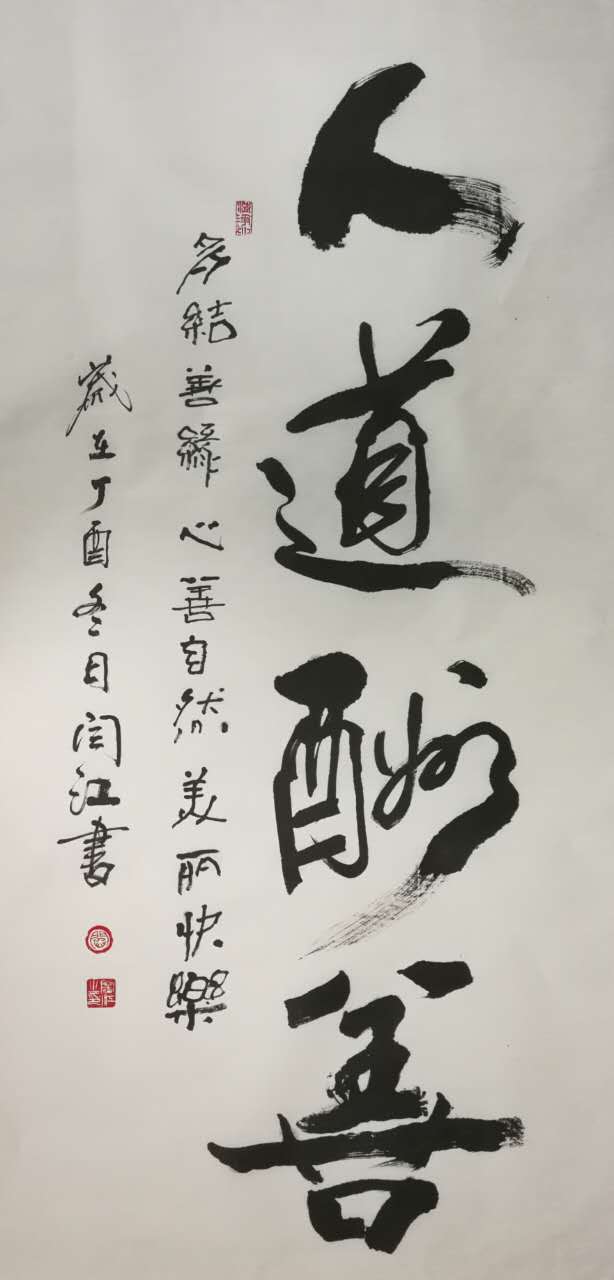 人道酬善
多结善缘心善自然美丽快樂
歲在丁酉冬日闫江書